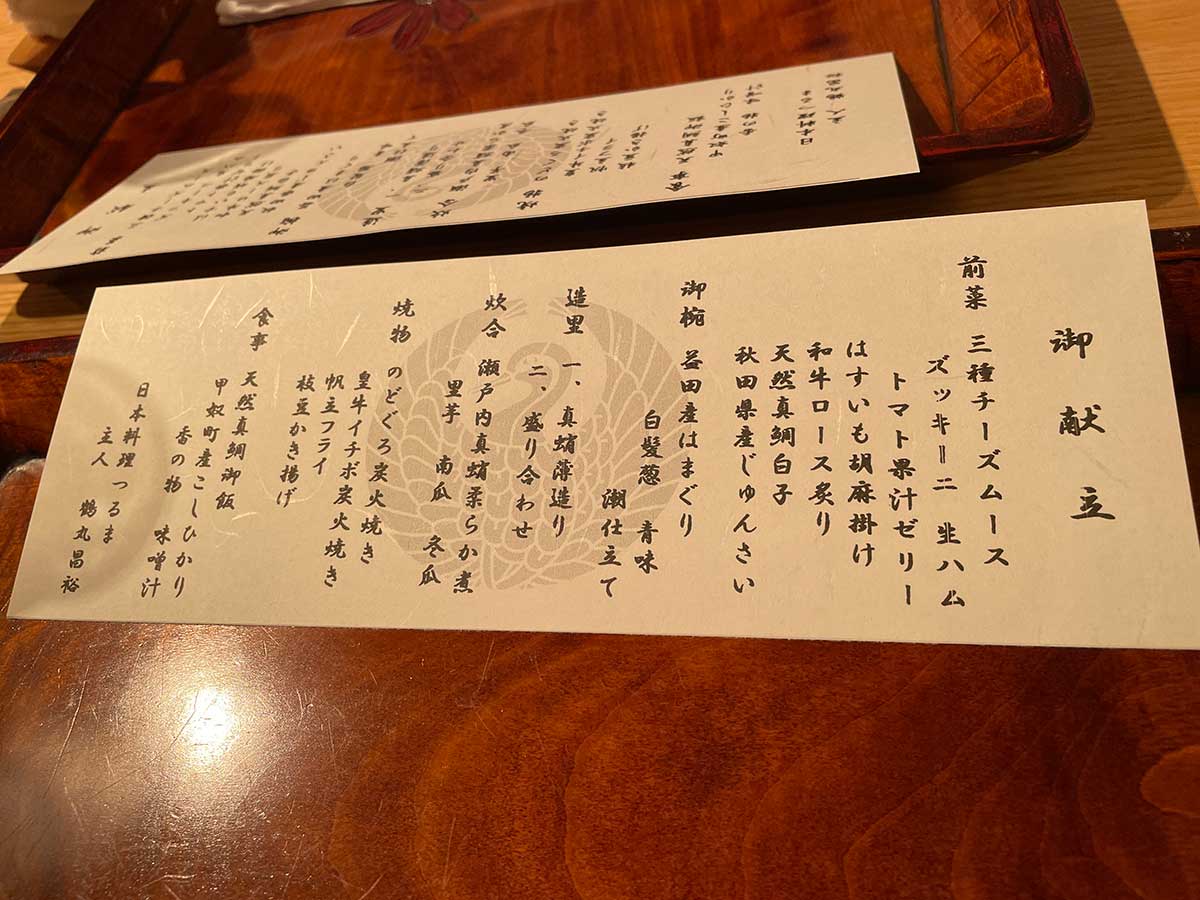 御献立
前菜 三種チーズムース
ズッキーニ 生ハム
トマト果汁ゼリー
はすいも胡麻掛け
和牛ロース炙り
天然真鯛白子
秋田県産じゅんさい
御椀 益田産はまぐり
白髪葱 青味
潮仕立て
造里 一、真蛸薄造り
二、盛り合わせ
炊合 瀬戸内真蛸柔らか煮
里芋 南瓜 冬瓜
焼物 のどぐろ炭火焼き
皇牛イチボ炭火焼き
帆立フライ
枝豆かき揚げ
食事 天然真鯛御飯
甲奴町産こしひかり
香の物 味噌汁
日本料理つるま
主人 鶴丸昌裕